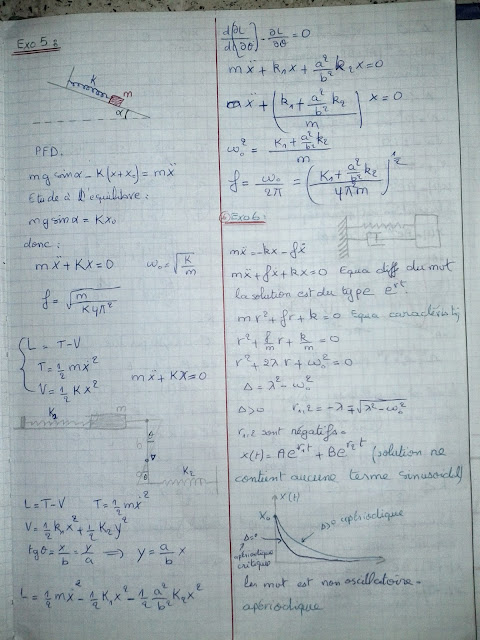 Exo 5.2
K
m
α
PFD.
mg sinα - K(x+x₀) = mẍ
Etude à l'equilibre:
mg sinα = Kx₀
donc:
mẍ + Kx = 0 ω₀ = √(K/m)
f = √(m/K4π²)
L = T-V
T = ½ mẋ²
V = ½ Kx²
mẍ + Kx = 0
m
b
K₂
L = T-V T = ½ mẋ²
V = ½ k₁x² + ½ K₂y²
tgθ = x/b = y/a ⟹ y = a/b x
L = ½ mẋ² - ½ K₁x² - ½ a²/b² K₂x²
mẍ + k₁x + a²/b² k₂x = 0
ẍ + ((k₁ + a²/b² k₂)/m) x = 0
ω₀² = (K₁ + a²/b² k₂)/m
f = ω₀/2π = ((K₁ + a²/b² k₂)/4π²m)^½
Exo 6:
mẍ = -kx - fẋ
mẍ + fẋ + kx = 0 Equa diff du mot
la solution est du type e^rt.
mr² + fr + k = 0 Equa caractéristi
r² + f/m r + k/m = 0
r² + 2λr + ω₀² = 0
Δ = λ² - ω₀²
Δ>0 r₁,₂ = -λ ∓ √(λ² - ω₀²)
r₁,₂ sont négatifs.
x(t) = Ae^r₁t + Be^r₂t (solution ne
contient aucune terme sinusoidal)
x(t)
X₀
Δ>0 apériodique
Δ=0
apériodique
critique
t
Les mot est non oscillatoire -
apériodique